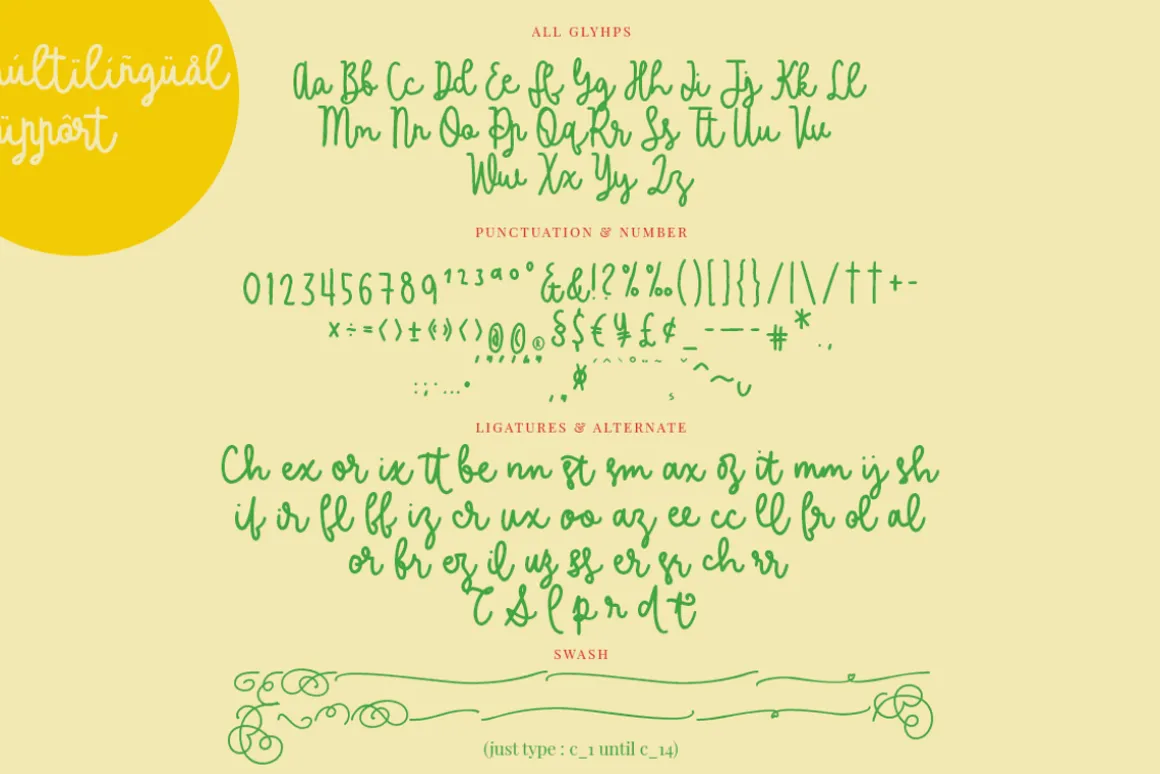 múltïlíñgüål
süppôrt
ALL GLYHPS
Aa Bb Cc Dd Ee Ff Gg Hh Ii Jj Kk Ll
Mm Nn Oo Pp Qq Rr Ss Tt Uu Vv
Ww Xx Yy Zz
PUNCTUATION & NUMBER
0123456789¹²³ªº°&&!?%‰()[]{}/|\/††+-
×÷=‹›±«»‹›@©®§$€¥£¢_-—-#*.,
:;·...•
LIGATURES & ALTERNATE
Ch ex or ix tt be nn st sm ax oz it mm ij sh
if ir fl ff iz cr ux oo az ee cc ll fr ol al
or br ez il uz ss er sr ch rr
T S l p r d t
SWASH
(just type : c_1 until c_14)